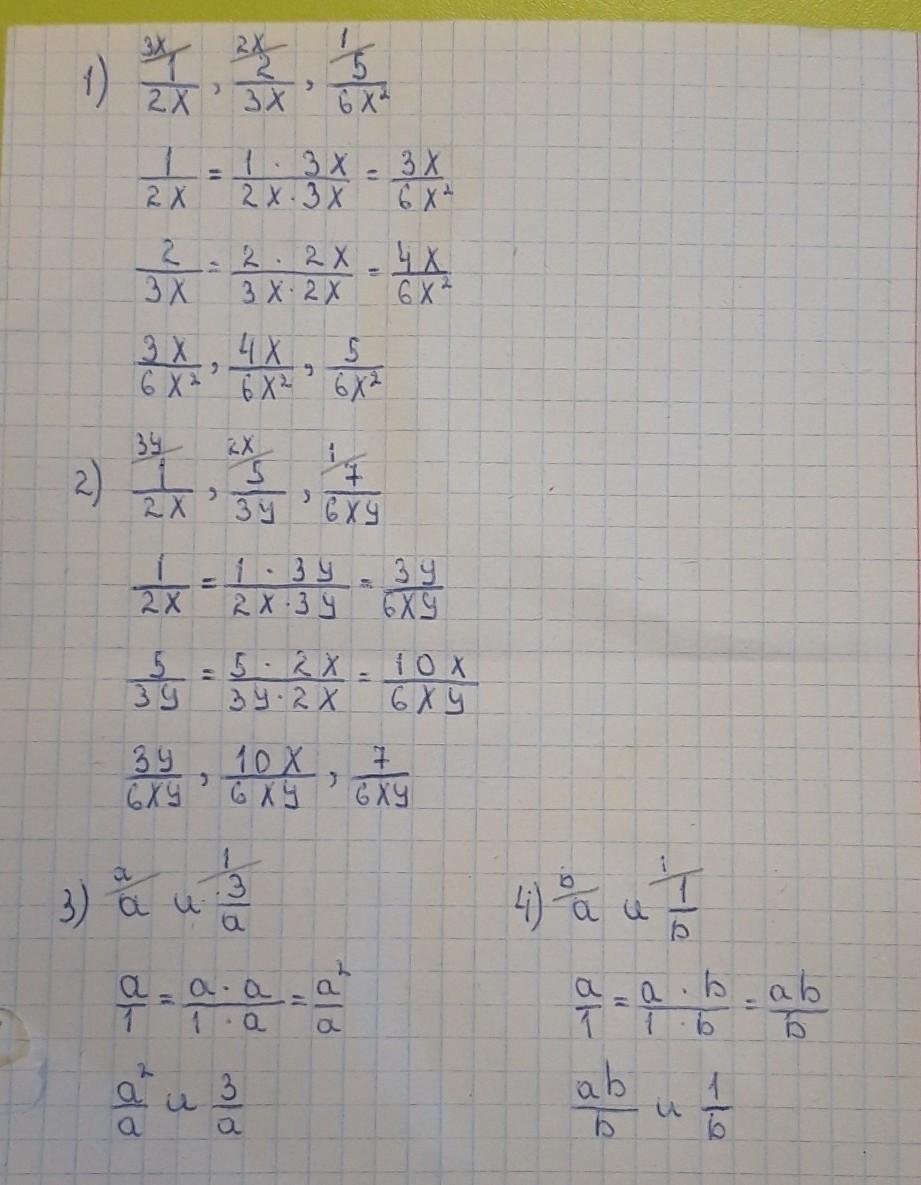 1) 3x/ 1/2x, 2x/ 2/3x, 1/ 5/6x²
1/2x = 1 · 3x/2x · 3x = 3x/6x²
2/3x = 2 · 2x/3x · 2x = 4x/6x²
3x/6x², 4x/6x², 5/6x²
2) 3y/ 1/2x, 2x/ 5/3y, 1/ 7/6xy
1/2x = 1 · 3y/2x · 3y = 3y/6xy
5/3y = 5 · 2x/3y · 2x = 10x/6xy
3y/6xy, 10x/6xy, 7/6xy
3) a/ a и 1/ 3/a
a/1 = a · a/1 · a = a²/a
a²/a и 3/a
4) b/ a и 1/ 1/b
a/1 = a · b/1 · b = ab/b
ab/b и 1/b